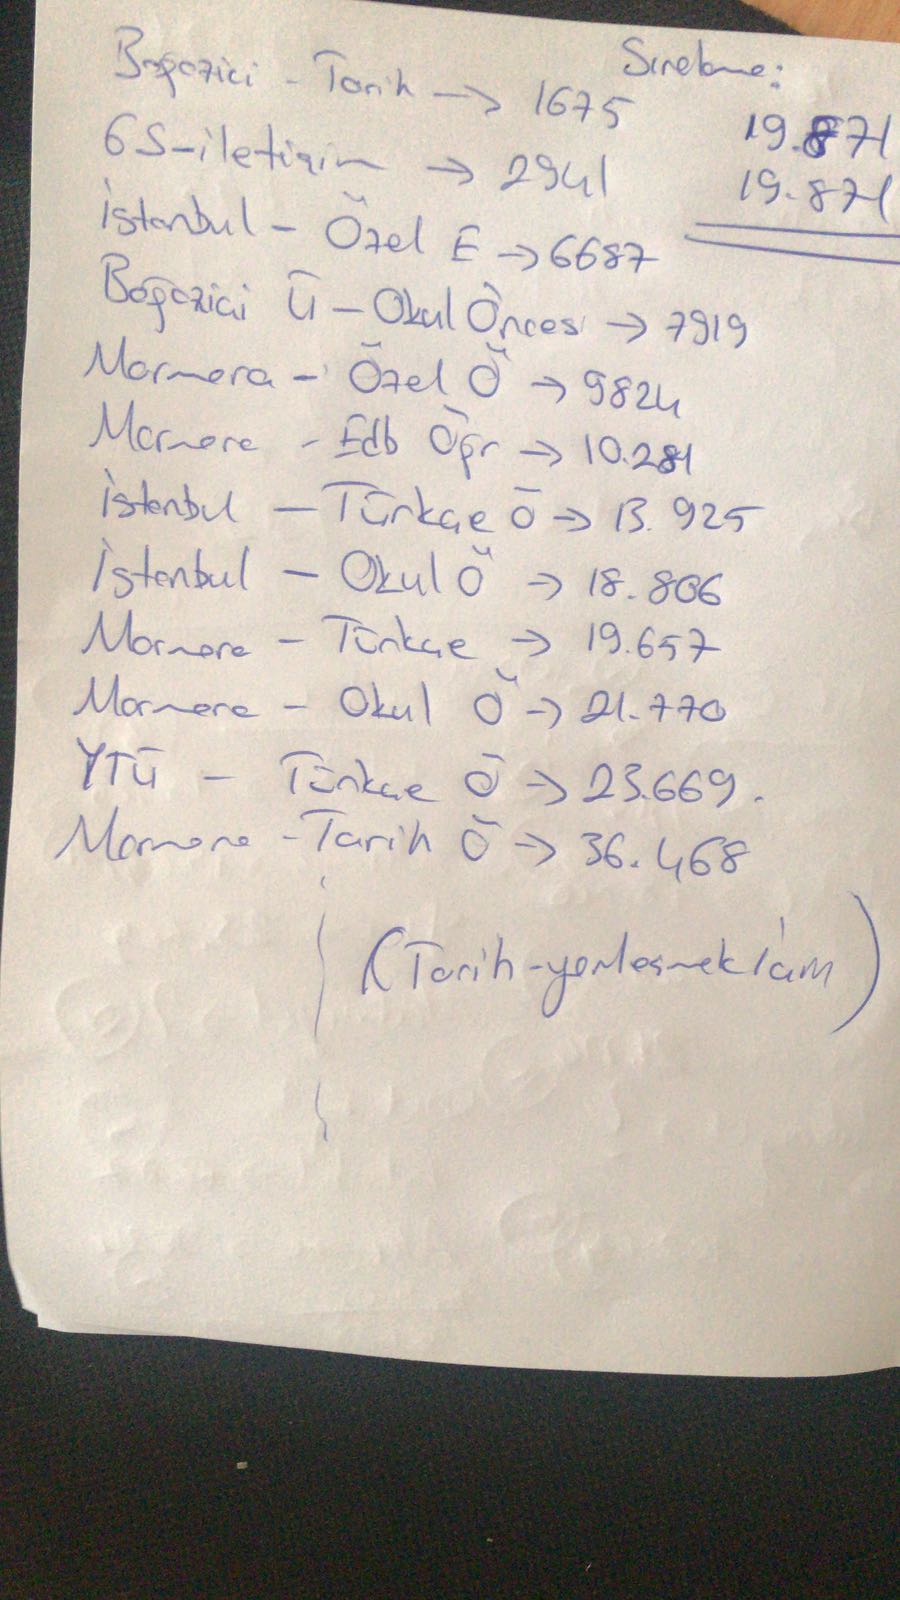 Boğaziçi - Tarih → 1675
Sıralama:
19.871
19.871
GS-iletişim → 2941
İstanbul - Özel E → 6687
Boğaziçi Ü - Okul Öncesi → 7919
Marmara - Özel Ö → 9824
Marmara - Edb Öğr → 10.281
İstanbul - Türkçe Ö → 13.925
İstanbul - Okul Ö → 18.806
Marmara - Türkçe → 19.657
Marmara - Okul Ö → 21.770
YTÜ - Türkçe Ö → 23.669.
Marmara - Tarih Ö → 36.468
(Tarih-yerleşmek)